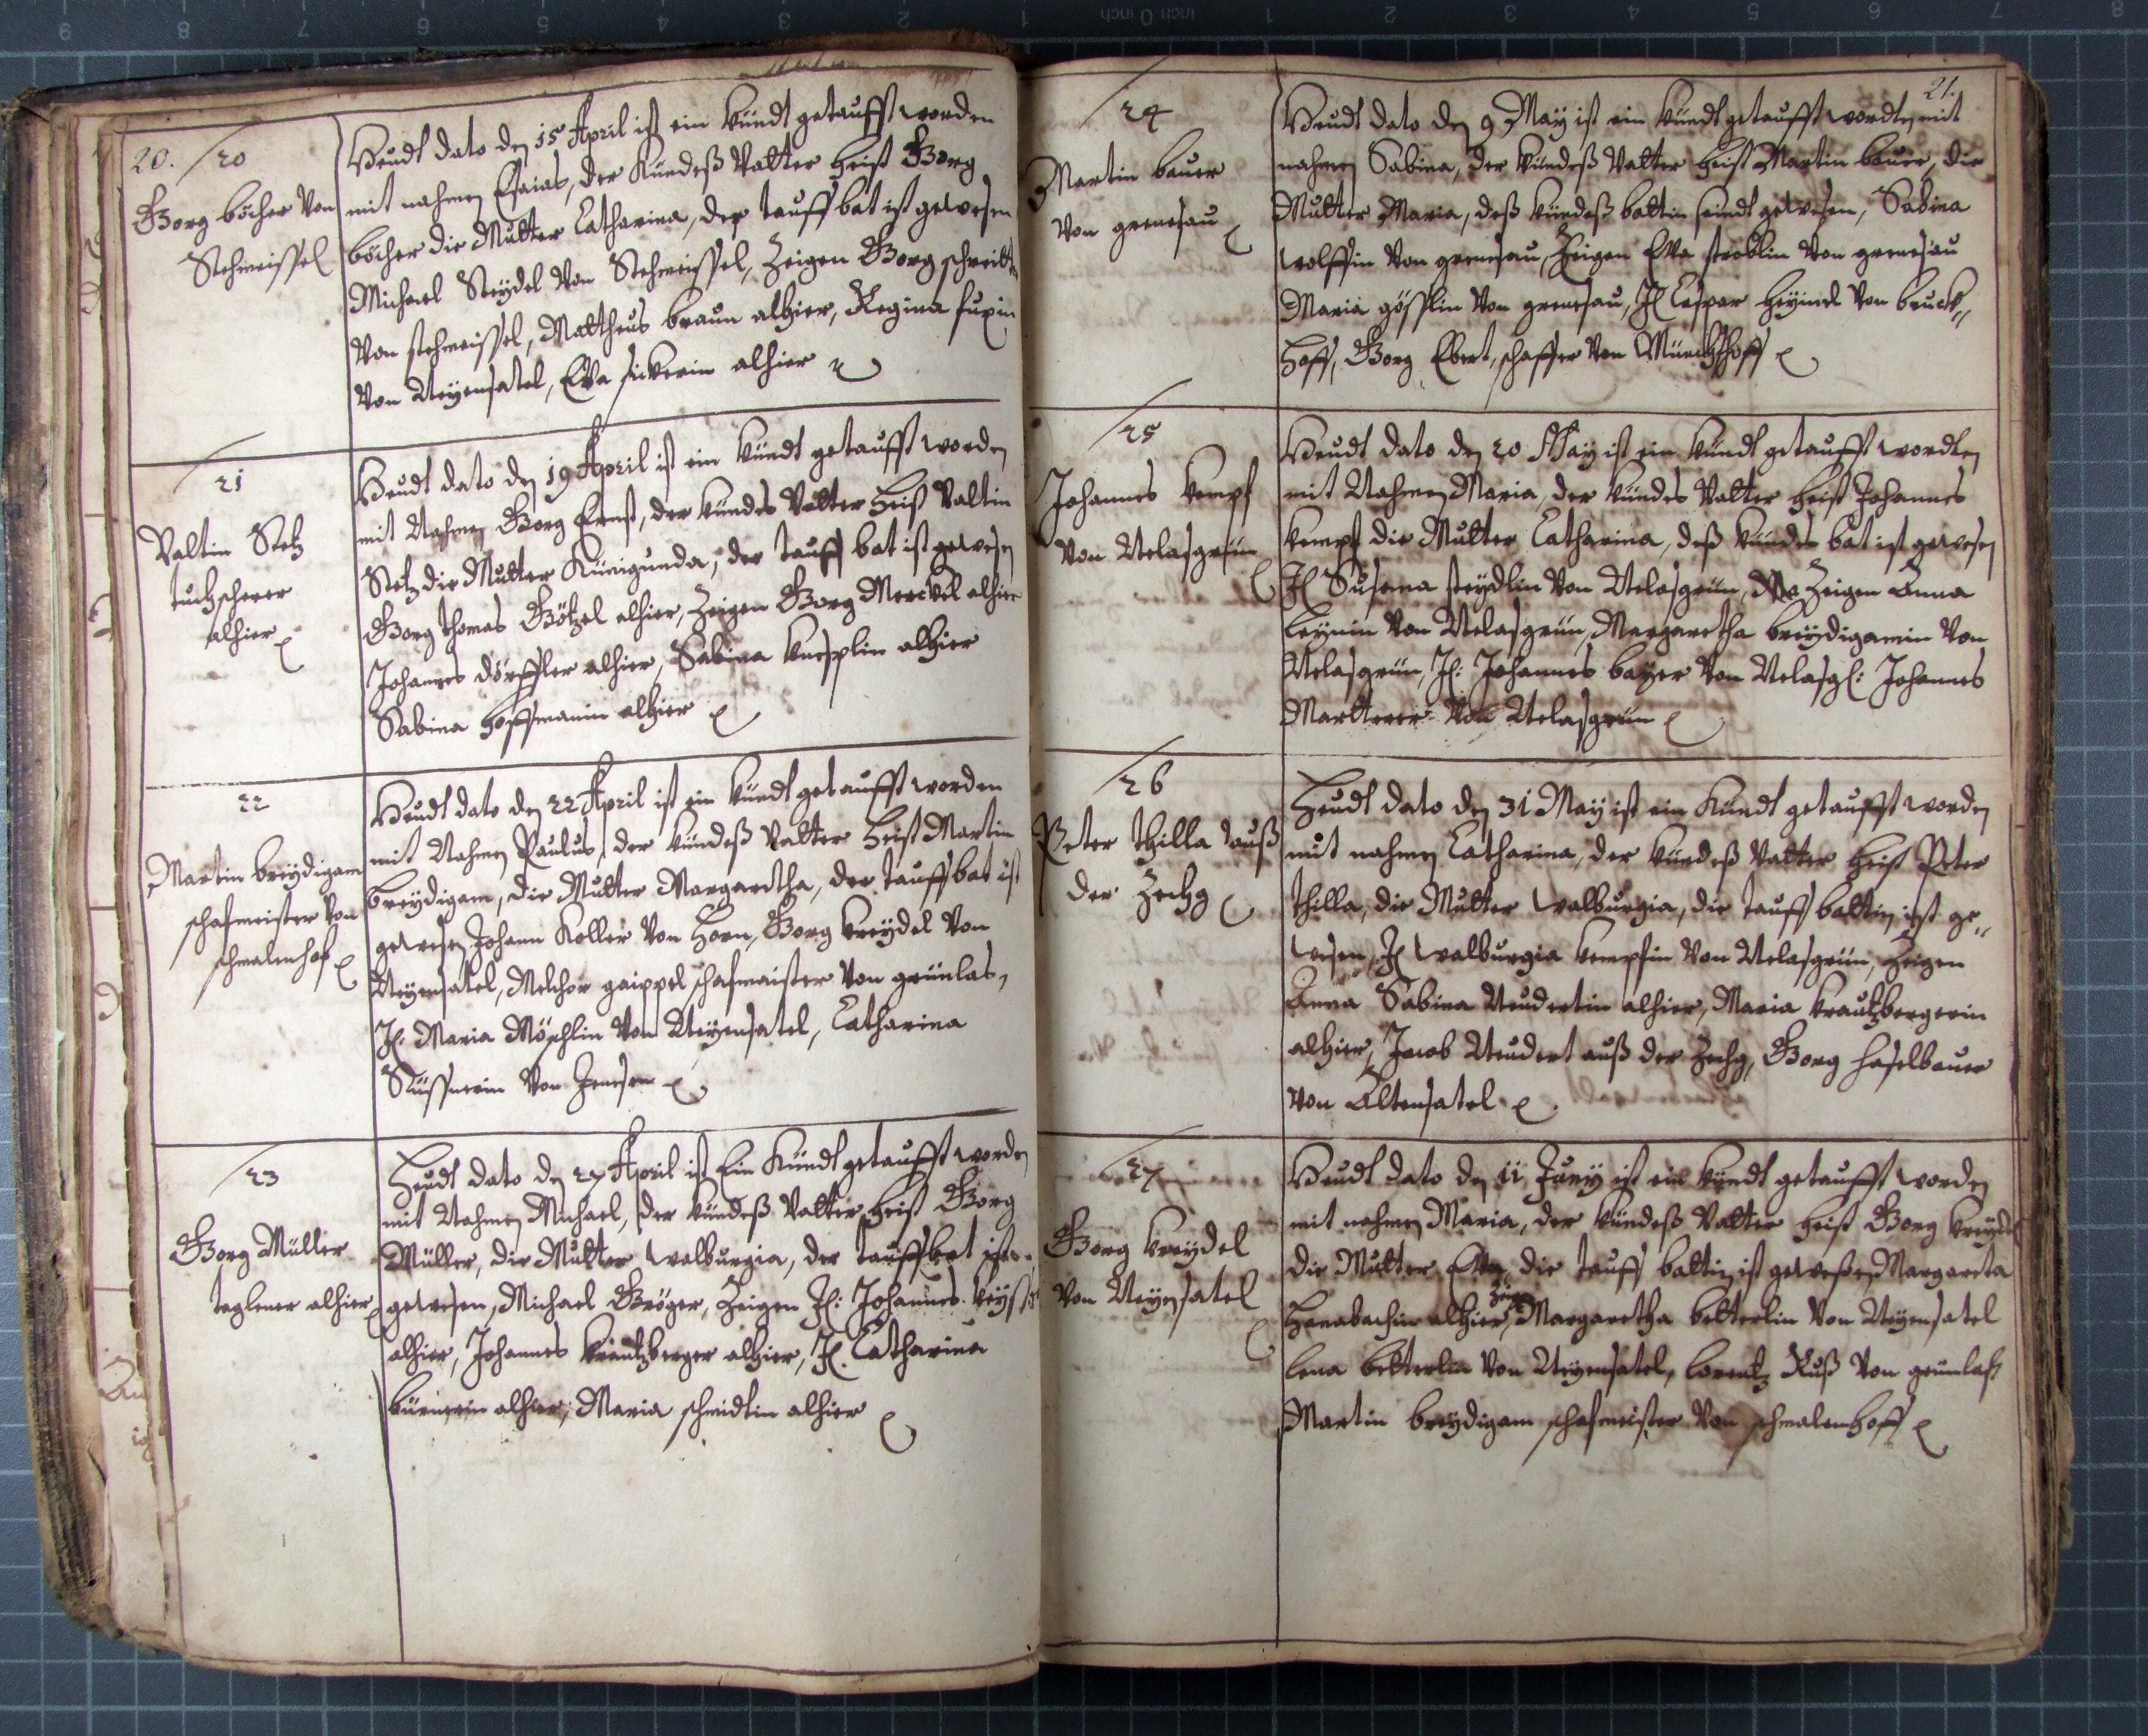 20. /20
Georg böcher Von
Stehmeissel
Heudt dato den 15 April ist ein kündt getaufft worden
mit nahmen Esaias, der Kündeß Vatter heist Georg
böcher die Mutter Catharina, der tauff bat ist gewesen
Michael Steydel Von Stehmeissel, Zeigen Georg
Von stehmeissel, Mattheus braun alhier, Regina fuxin
Von Neyensatel, Eva alhier
21
Valtin Stelz
tuchscherer
alhier
Heudt dato den 19 April ist ein kündt getaufft worden
mit Nahmen Georg Ernst, der kündes Vatter heist Valtin
Stelz die Mutter Künigunda, der tauff bat ist gewesen
Georg thomas Götzel alhier, Zeigen Georg Merckel alhier
Johannes dörffler alhier, Sabina alhier
Sabina hoffmanin alhier
22
Martin breydigam
schafmeister Von
schmalenhof
Heudt dato den 22 April ist ein kündt getaufft worden
mit Nahmen Paulus, der kündeß Vatter heist Martin
breydigam, die Mutter Margaretha, der tauff bat ist
gewesen Johann Koller Von Horn, Georg kreydel Von
Neyensatel, Melchor gaippel schafmaister Von grünlas,
It: Maria Möschlin Von Neyensatel, Catharina
Von
/23
Georg Müller
taglener alhier
Heudt dato den 27 April ist Ein Kündt getaufft worden
mit Nahmen Michael, der kündeß Vatter heist Georg
Müller, die Mutter walburgia, der tauff bat ist
gewesen, Michael Gröger, Zeigen It: Johannes
alhier, Johannes krautzberger alhier, It. Catharina
alhier, Maria schmidtin alhier
21.
/24
Martin bauer
Von grenesau
Heudt dato den 9 May ist ein kündt getaufft wordten mit
nahmen Sabina, der kündeß Vatter heist Martin bauer, die
Mutter Maria, deß kündeß battin seindt gewesen, Sabina
wolffin Von grenesau, Zeigen Eva stroblin Von grenesau
Maria gösslin Von grenesau, It Caspar heyind Von bruck„
hoff, Georg Ebert, schaffer Von Münchhoff
/25
Johannes kempf
Von Welasgrün
Heudt dato den 20 May ist ein kündt getaufft wordten
mit Nahmen Maria, der kündes Vatter heist Johannes
kempf die Mutter Catharina, deß kündes bat ist gewesen
It Susana steydlin Von Welasgrün, Zeigen Anna
Von Welasgrün, Margaretha breydigamin Von
Welasgrün, It: Johannes bayer Von Welasg: Johannes
Von Welasgrün
/26
Peter thilla auß
der Zechg
Heudt dato den 31 May ist ein Kündt getaufft worden
mit nahmen Catharina, der kündeß Vatter heist Peter
thilla, die Mutter walburgia, die tauff battin ist ge„
wesen, It walburgia kempfin Von Welasgrün, Zeigen
Anna Sabina Neudertin alhier, Maria krautzbergerin
alhier, Jacob Neudert auß der Zechg, Georg haselbauer
Von Altensatel
/27
Georg kreydel
Von Neyensatel
Heudt dato den 11 Juny ist ein kündt getaufft worden
mit nahmen Maria, der kündeß Vatter heist Georg kreydel
die Mutter Eva, die tauff battin ist geweßen Margareta
alhier, Margaretha betterlin Von Neyensatel
lena betterlin Von Neyensatel, lorentz Ruß Von grünlas
Martin breydigam schafmeister Von schmalenhoff